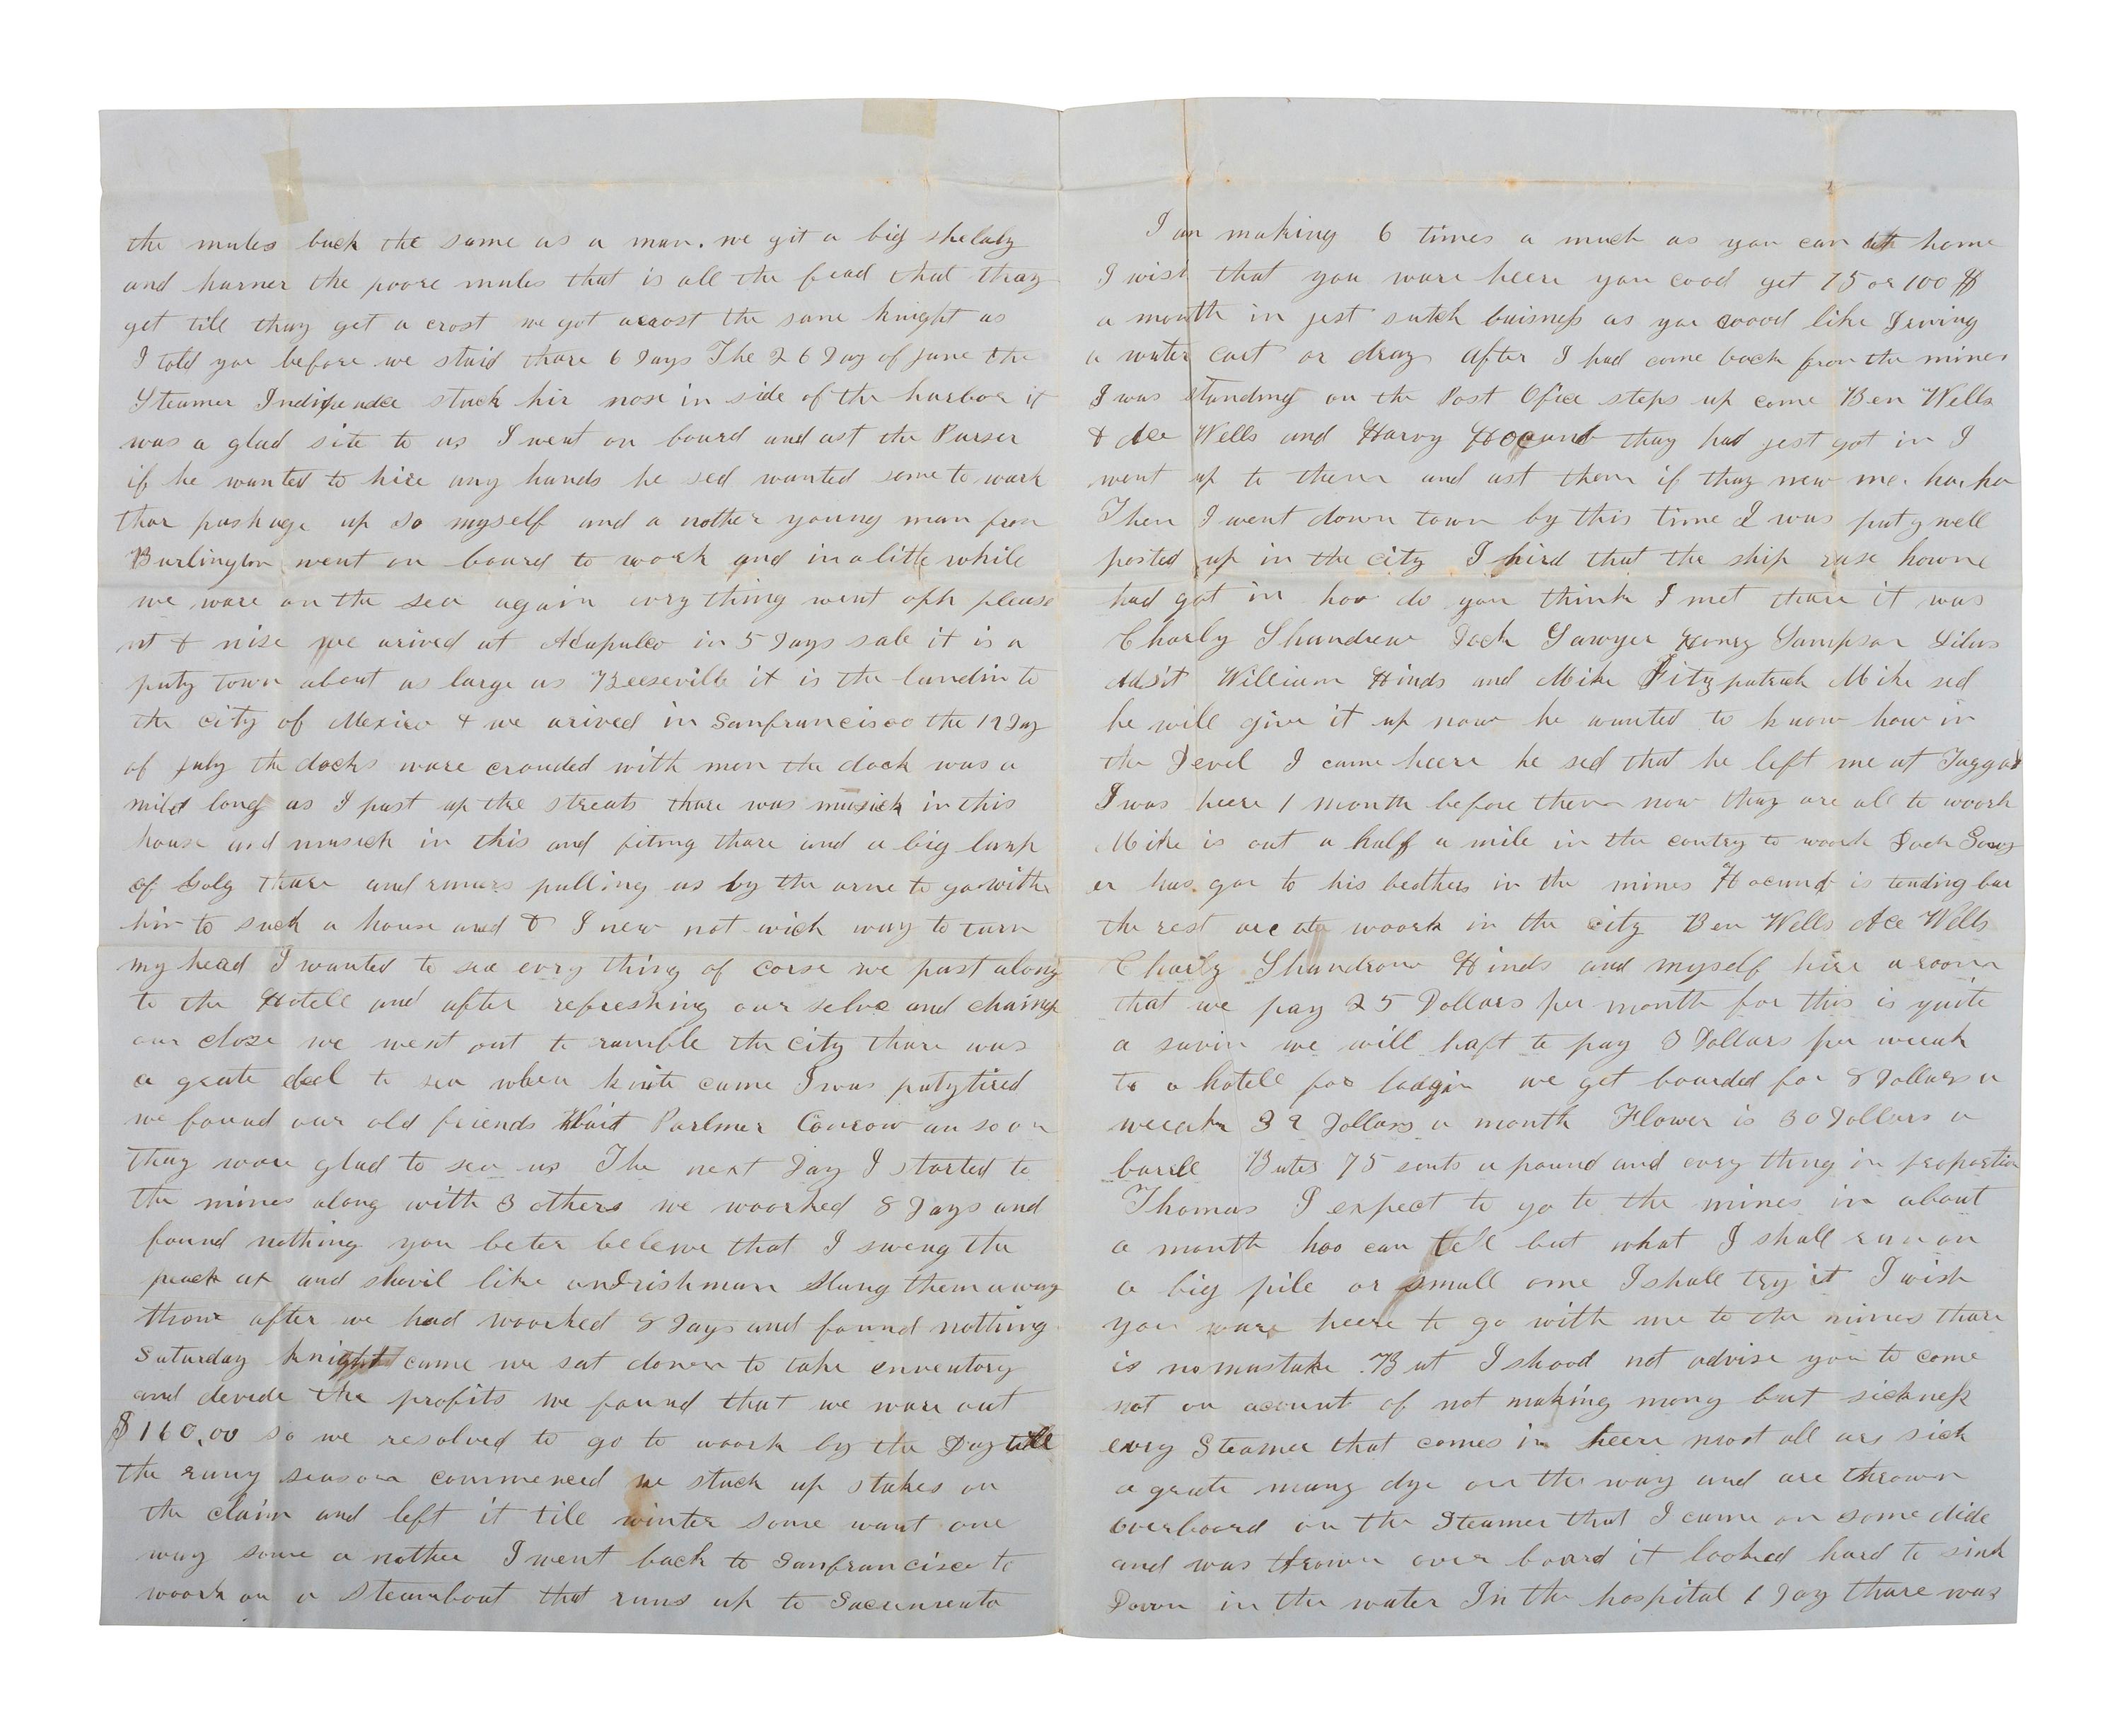 the mules back the same as a man. we git a big shelaly
and harner the poore mules that is all the fead that thay
get till thay get a crost we got acrost the same knight as
I told you before we staid thare 6 Days The 26 Day of june the
Steamer Independce stuck hir nose in side of the harbor it
was a glad site to us I went on board and ast the Purser
if he wanted to hire any hands he sed wanted some to work
thar pashage up so myself and a nother young man from
Burlington went on board to work and in a little while
we ware on the sea again evry thing went oph pleasa
nt & nise we arived at Acapulco in 5 Days sale it is a
puty town about as large as Keeseville it is the landin to
the city of Mexico & we arived in Sanfrancisco the 12 Day
of july the docks ware crouded with men the dock was a
mild long as I past up the streats thare was musick in this
house and musick in this and fiting thare and a big lump
of Golg thare and runars pulling us by the arme to go with
him to such a house and & I new not wich way to turn
my head I wanted to sea evry thing of corse we past along
to the Hotell and after refreshing our selve and chaing
our close we went out to ramble the city thare was
a grate deal to sea when knite came I was putytired
we found our old friends Wait Parlmer Conrow an so on
thay ware glad to sea us The next Day I started to
the mines along with 3 others we woorked 8 Days and
found nothing you beter beleive that I swung the
peack ax and shovil like an Irishman Slung them away
thone after we had woorked 8 Days and found nothing
Saturday knight came we sat down to take enventory
and devide the profits we found that we ware out
$160.00 so we resolved to go to woork by the Day till
the rany season commenced we stuck up stakes on
the claim and left it till winter some want one
way some a nother I went back to Sanfrancisco to
woork on a steamboat that runs up to Sacumento
I am making 6 times a much as you can at home
I wish that you ware heere you cood get 75 or 100 $
a month in jest sutch buisness as you woood like Driving
a water cart or dray After I had come back from the mines
I was standing on the Post Ofice steps up come Ben Wells
& Ace Wells and Harvy Hocund thay had jest got in I
went up to them and ast them if thay new me. ha, ha
Then I went down town by this time I was puty well
posted up in the city I hird that the ship rase howne
had got in hoo do you think I met thare it was
Charly Shundrew Jack Sawyer Henry Sampson Silus
Adsit William Hinds and Mike Fitzpatrick Mike sed
he will give it up now he wanted to know how in
the Devel I came heere he sed that he left me at Taggar
I was heere 1 month before them now thay are all to woork
Mike is out a half a mile in the contry to woork Jack Sawy
er has gon to his brothers in the mines Hocund is tending bar
the rest are ato woork in the city Ben Wells Ace Wells
Charly Shundrow Hinds and myself hire a room
that we pay 25 Dollars per month for this is quite
a savin we will haft to pay 3 Dollars per weeak
to a hotell for lodgin we get boarded for 8 Dollars a
weeak 32 Dollars a month Flower is 30 Dollars a
barell Buter 75 sents a pound and evry thing in proportion
Thomas I expect to go to the mines in about
a month hoo can tell but what I shall run on
a big pile or small one I shall try it I wish
you ware heere to go with me to the mines thare
is no mustake. But I shood not advise you to come
not on acount of not making mony but sickness
evry Steamer that comes in heere most all are sick
a grate many dye on the way and are thrown
overboard on the Steamer that I came on some dide
and was thrown over board it looked hard to sink
Down in the water In the hospital 1 Day thare was